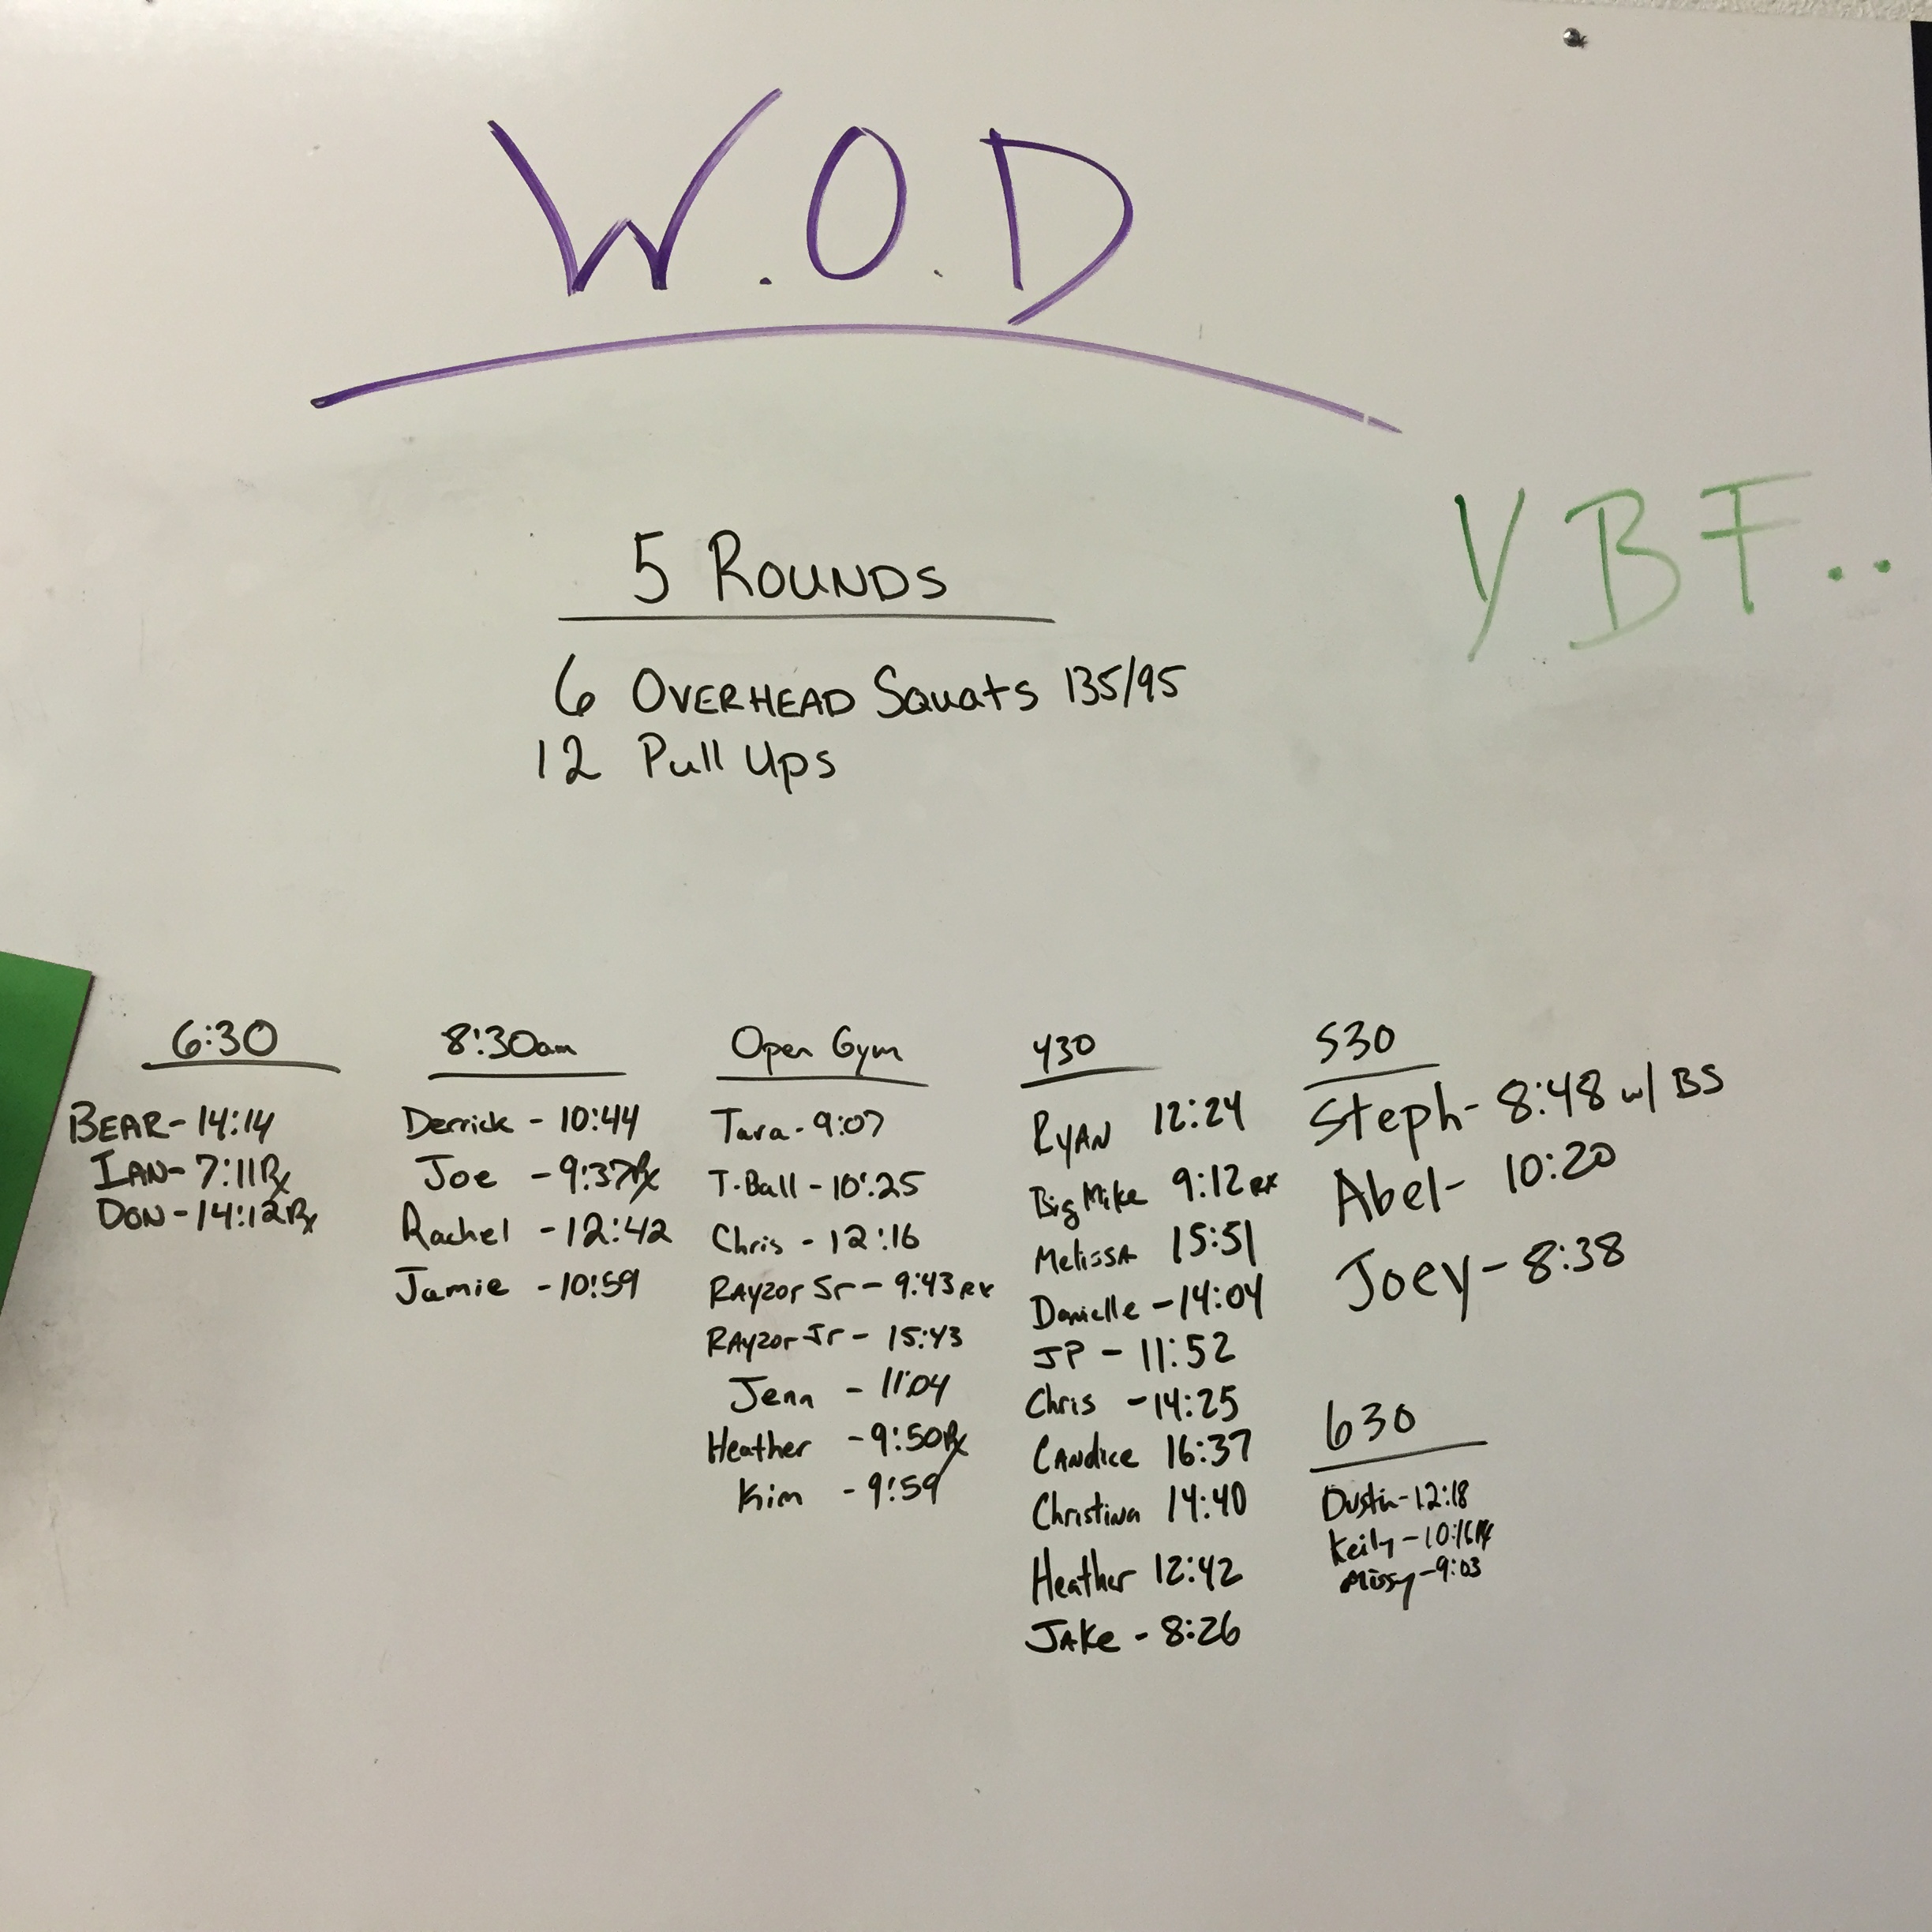 W.O.D
YBF..
5 ROUNDS
6 OVERHEAD Squats 135/95
12 Pull Ups
6:30
BEAR-14:14
IAN-7:11Rx
DON-14:12Rx
8:30am
Derrick - 10:44
Joe - 9:37Rx
Rachel - 12:42
Jamie - 10:59
Open Gym
Tara - 9:07
T-Ball - 10:25
Chris - 12:16
RAyzor Sr - 9:43 RX
RAyzor Jr - 15:43
Jenn - 11:04
Heather - 9:50Rx
Kim - 9:59
430
RYAN 12:24
Big Mike 9:12 RX
MelissA 15:51
Danielle - 14:04
JP - 11:52
Chris - 14:25
CANdice 16:37
Christina 14:40
Heather 12:42
JAKe - 8:26
530
Steph - 8:48 w/ BS
Abel - 10:20
Joey - 8:38
630
Dustin-12:18
Keily-10:16Rx
Missy-9:03